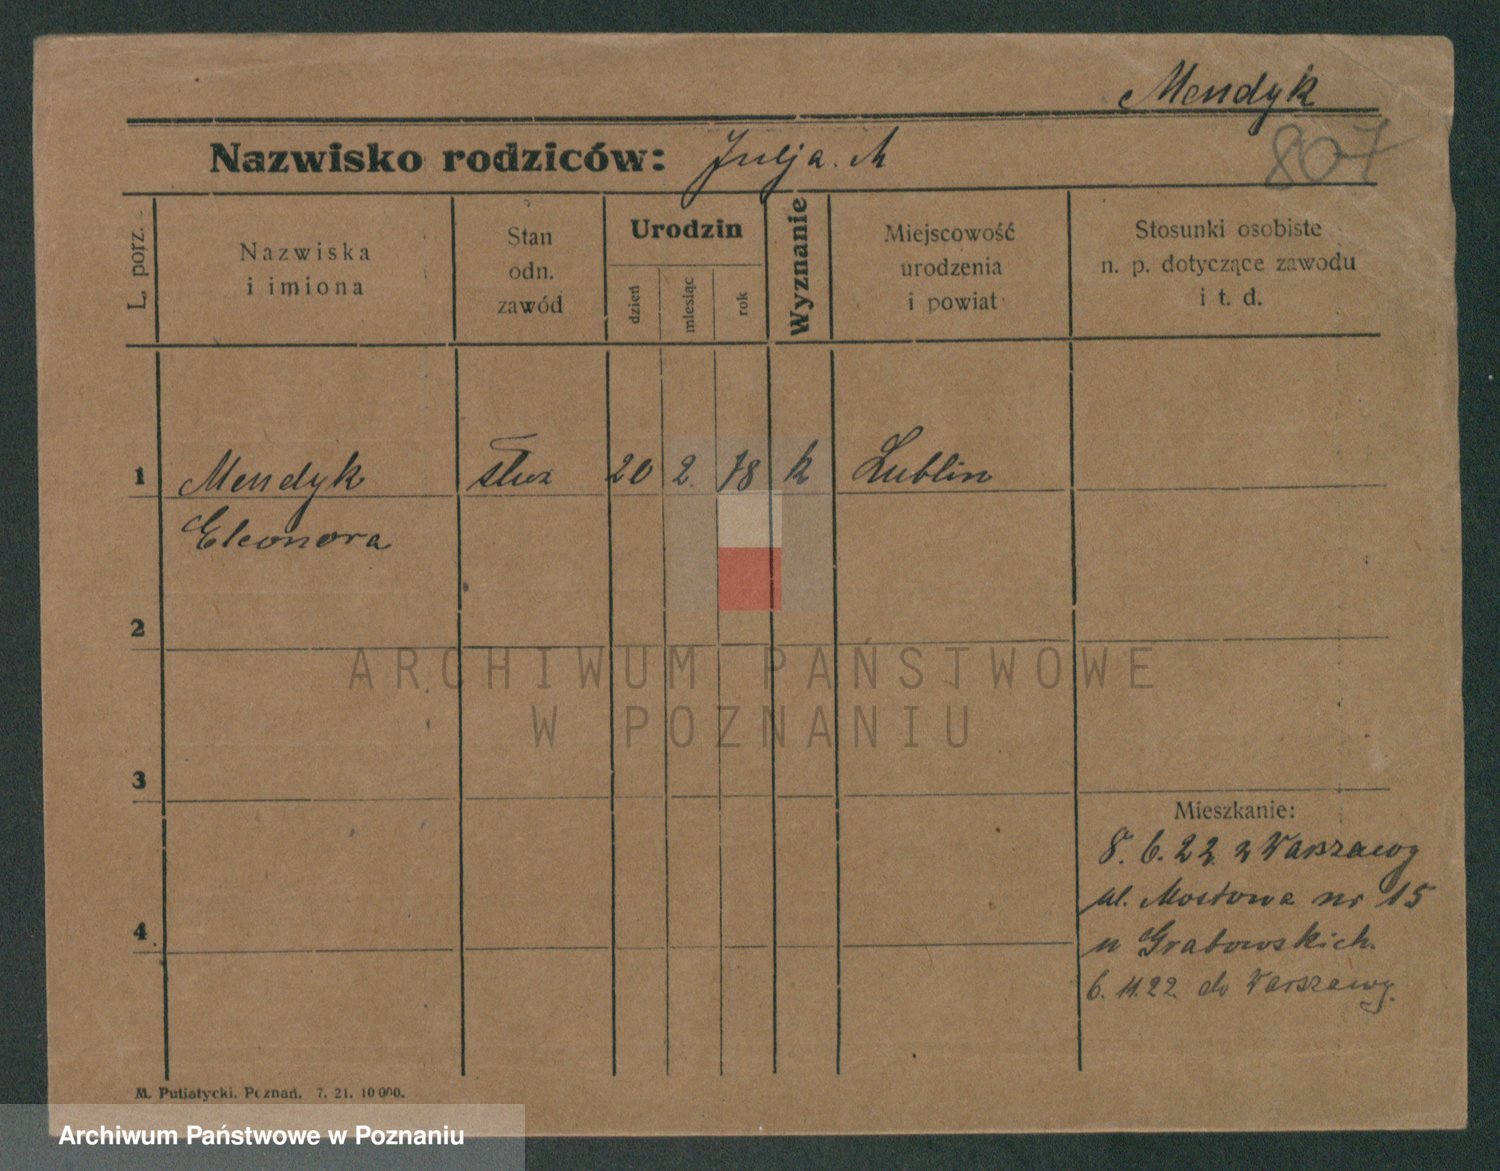 Mendyk
807
Nazwisko rodziców: Julja. M
L. porz.
Nazwiska
i imiona
Stan
odn.
zawód
Urodzin
dzień
miesiąc
rok
Wyznanie
Miejscowość
urodzenia
i powiat
Stosunki osobiste
n. p. dotyczące zawodu
i t. d.
1 Mendyk służ 20 2. 78 k Lublin
Eleonora
2
ARCHIWUM PAŃSTWOWE
W POZNANIU
3
Mieszkanie:
8. 6. 22 z Warszawy
ul. Mostowa nr 15
4
u Grabowskich.
6. 11. 22 do Warszawy.
M. Putiatycki. Poznań. 7. 21. 10 000.
Archiwum Państwowe w Poznaniu